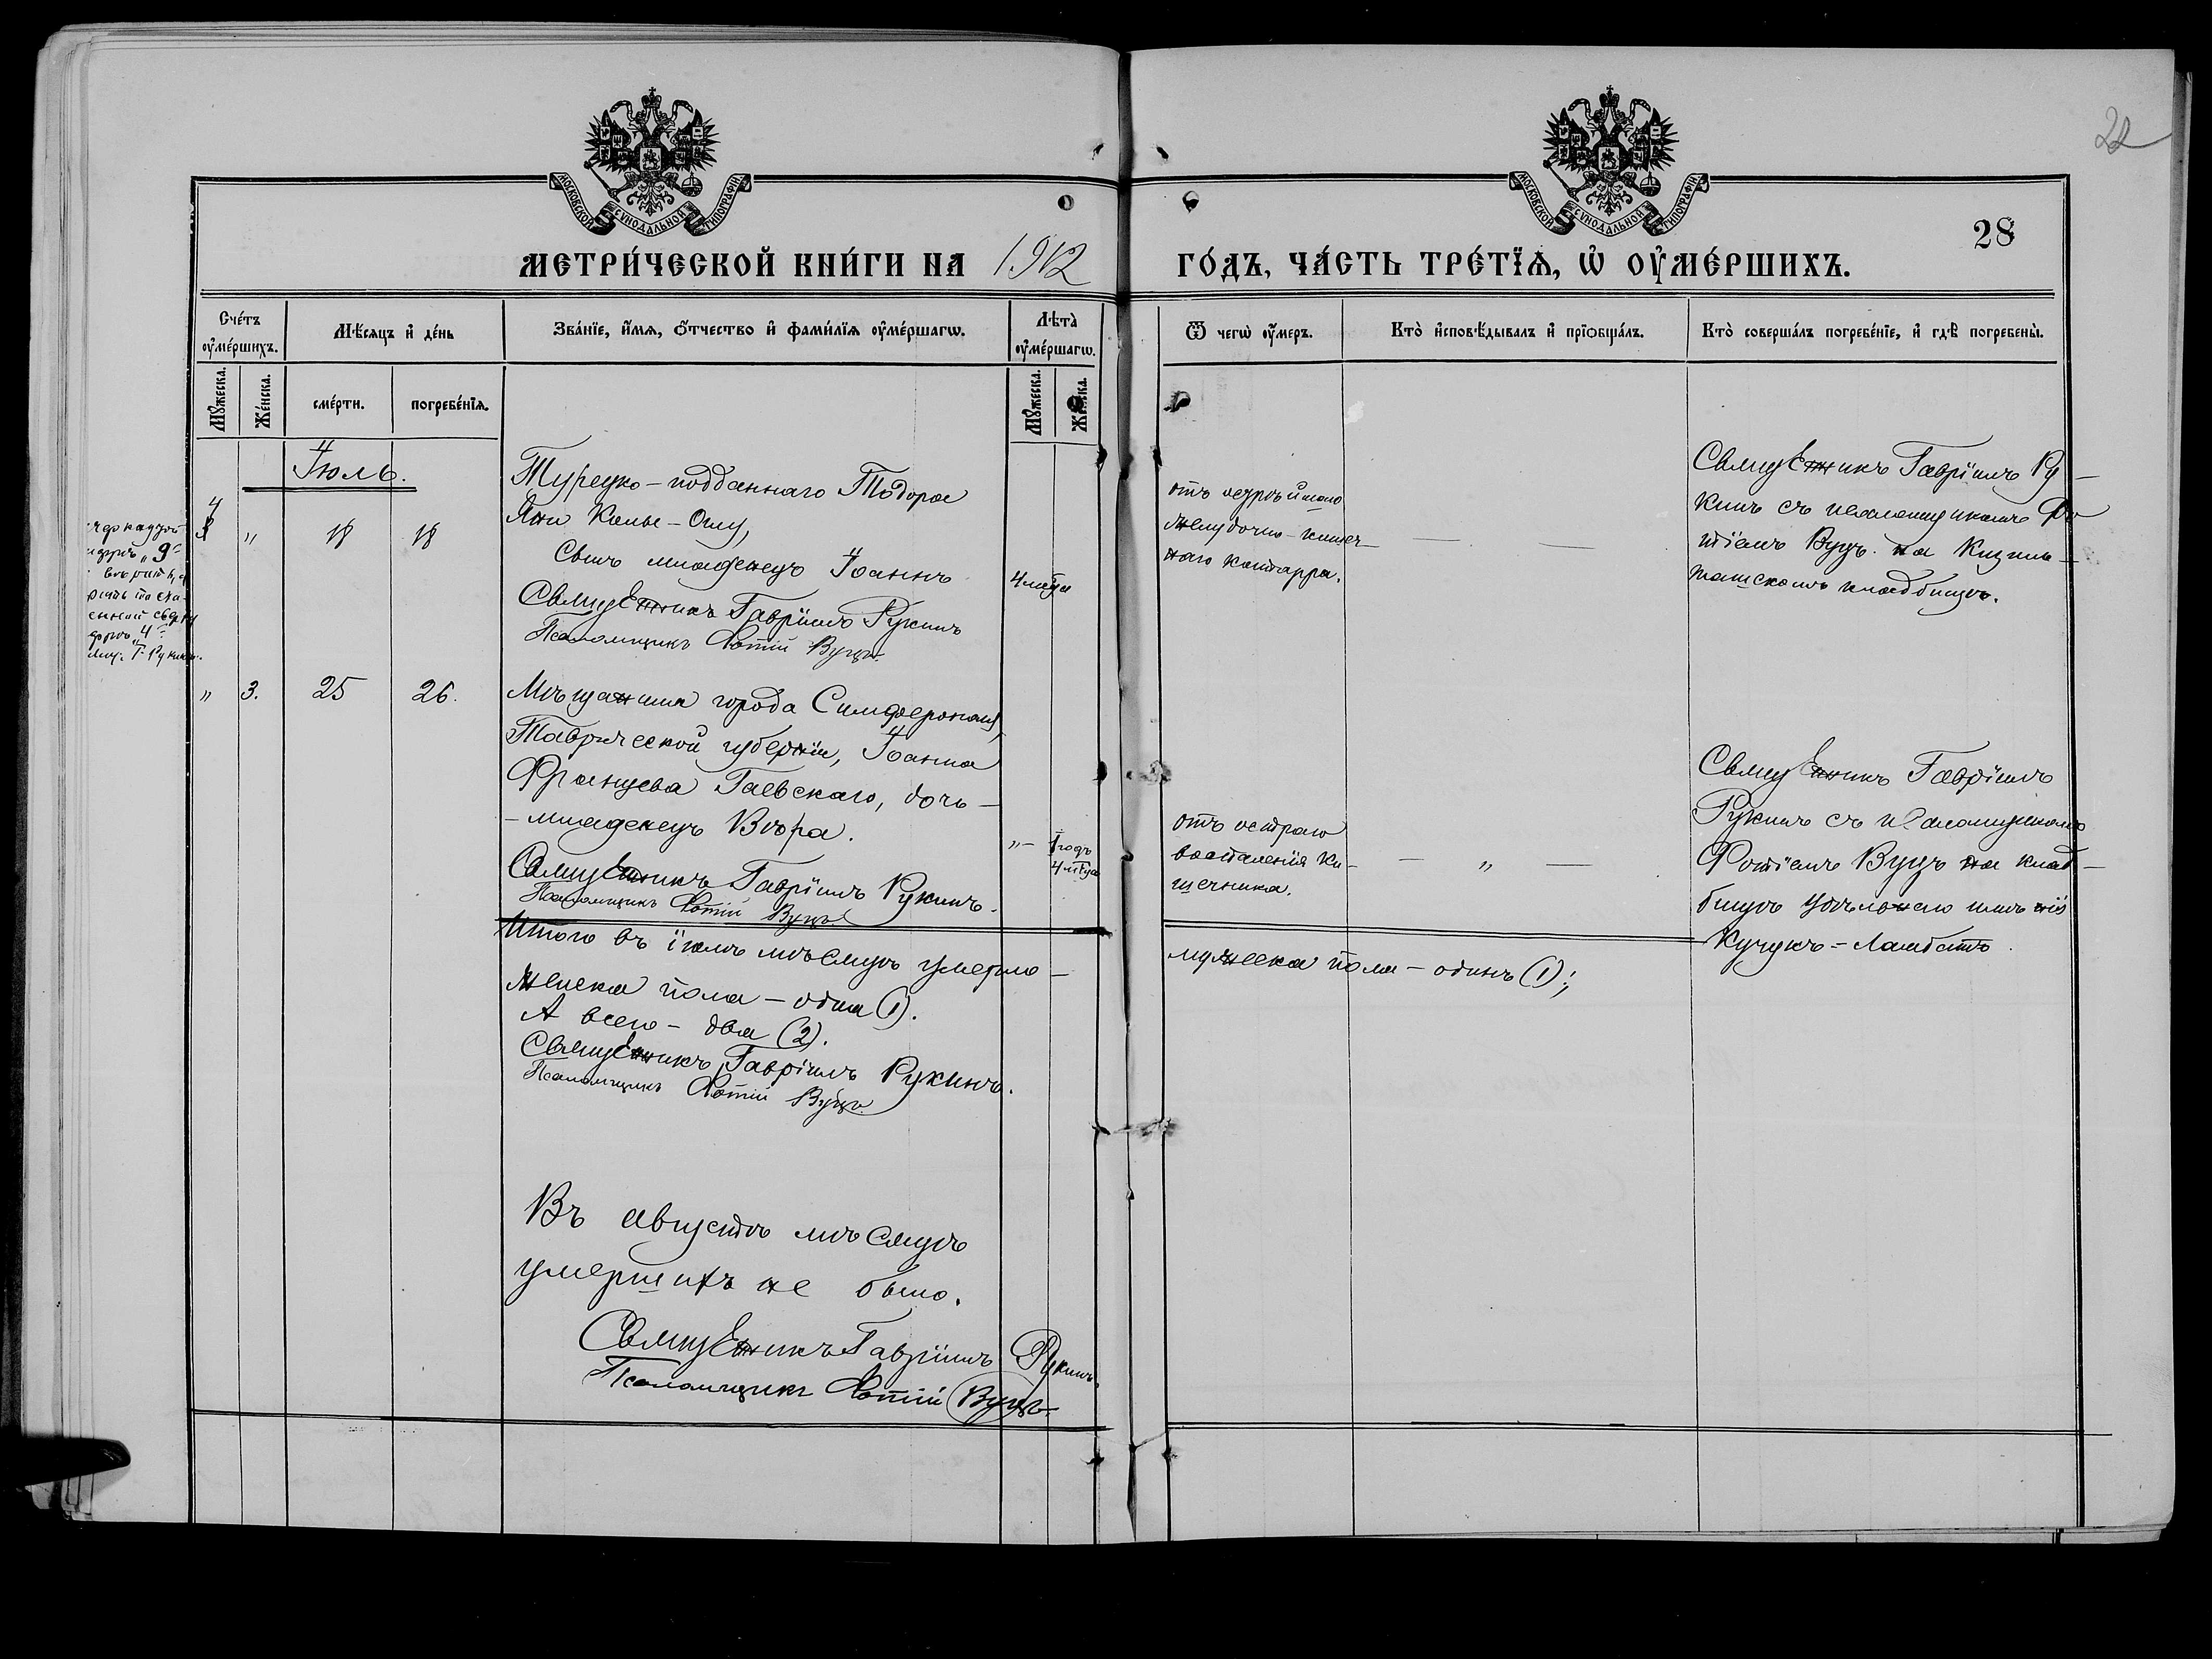 МОСКОВСКОЙ СѴНОДАЛЬНОЙ ТИПОГРАФІИ
МОСКОВСКОЙ СѴНОДАЛЬНОЙ ТИПОГРАФІИ
22
28
МЕТРИ́ЧЕСКОЙ КНИ́ГИ НА 1912 ГО́ДЪ, ЧА́СТЬ ТРЕ́ТЇѦ, Ѡ҆ ОУ҆МЕ́РШИХЪ.
Сче́тъ оу҆ме́ршихъ.
Мѣ́сяцъ и҆ де́нь
Зва́нїе, и҆́мѧ, ѻ҆́тчество и҆ фами́лїѧ оу҆ме́ршагѡ.
Лѣ́та оу҆ме́ршагѡ.
Ѿ чегѡ̀ оу҆́меръ.
Кто̀ и҆сповѣ́дывалъ и҆ прїѡбща́лъ.
Кто̀ соверша́лъ погребе́нїе, и҆ гдѣ̀ погребены̀.
Мꙋ́жеска.
Же́нска.
сме́рти.
погребе́нїѧ.
Мꙋ́жеска.
Же́нска.
Іюль.
4
„
18
18
Турецко-подданнаго Тодора
Яни
сынъ младенецъ Іоаннъ
Священникъ Гавріилъ Рукинъ
Псаломщикъ Фотій Вуцъ.
4 м-ца
желудочно-кишеч-
наго катарра.
— —
Священникъ Гавріилъ Ру-
кинъ съ псаломщикомъ Фо-
тіемъ Вуцъ на Кизиль-
ташскомъ кладбищѣ.
„
3.
25
26.
Мѣщанина города Симферополя,
Таврической губерніи, Іоанна
Францева Гаевскаго, дочь-
-младенецъ Вѣра.
Священникъ Гавріилъ Рукинъ.
Псаломщикъ Фотій Вуцъ
„ —
1 годъ
4 м-ца
отъ остраго
воспаленія ки-
шечника.
— „ —
Священникъ Гавріилъ
Рукинъ съ псаломщикомъ
Фотіемъ Вуцъ на клад-
бищѣ удѣльнаго имѣнія
Кучукъ-Ламбатъ.
Итого въ іюлѣ мѣсяцѣ умерло —
мужеска пола — одинъ (1);
женска пола — одна (1).
А всего — два (2).
Священникъ Гавріилъ Рукинъ.
Псаломщикъ Фотій Вуцъ
Въ августѣ мѣсяцѣ
умершихъ не было.
Священникъ Гавріилъ Рукинъ.
Псаломщикъ Фотій Вуцъ.